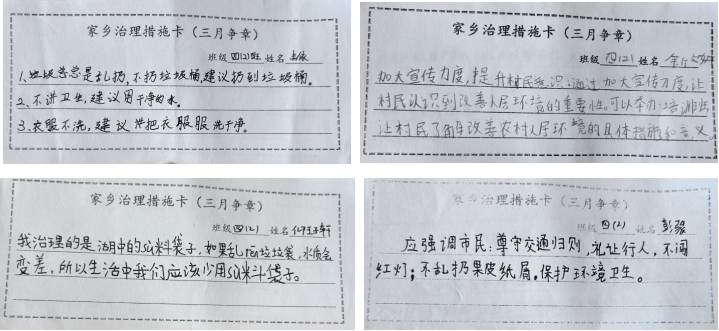 家乡治理措施卡（三月争章）
班级 四(2)班 姓名
1、垃圾总总是乱扔，不扔垃圾桶，建议扔到垃圾桶。
2、不讲卫生，建议用干净的水。
3、衣服不洗，建议 把衣服服洗干净。
家乡治理措施卡（三月争章）
班级 四(2) 姓名
加大宣传力度，提升村民意识：通过加大宣传力度，让
村民认识到改善人居环境的重要性。可以举办培训班
让村民了解改善农村人居环境的具体措施和意义。
家乡治理措施卡（三月争章）
班级 四(2) 姓名
我治理的是湖中的塑料袋子，如果乱扔垃圾袋，水质会
变差，所以生活中我们应该少用塑料袋子。
家乡治理措施卡（三月争章）
班级 四(2) 姓名 彭
应强调市民：尊守交通归则，礼让行人，不闯
红灯；不乱扔果皮纸屑，保护环境卫生。